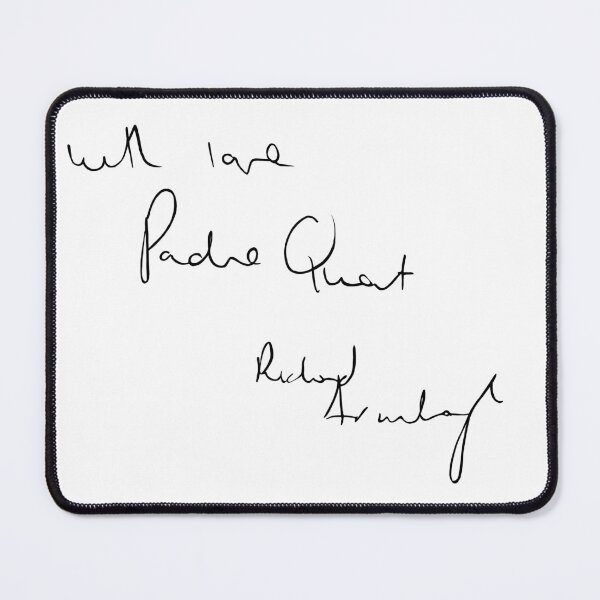 with love
Padre Quart
Richard
Armitage